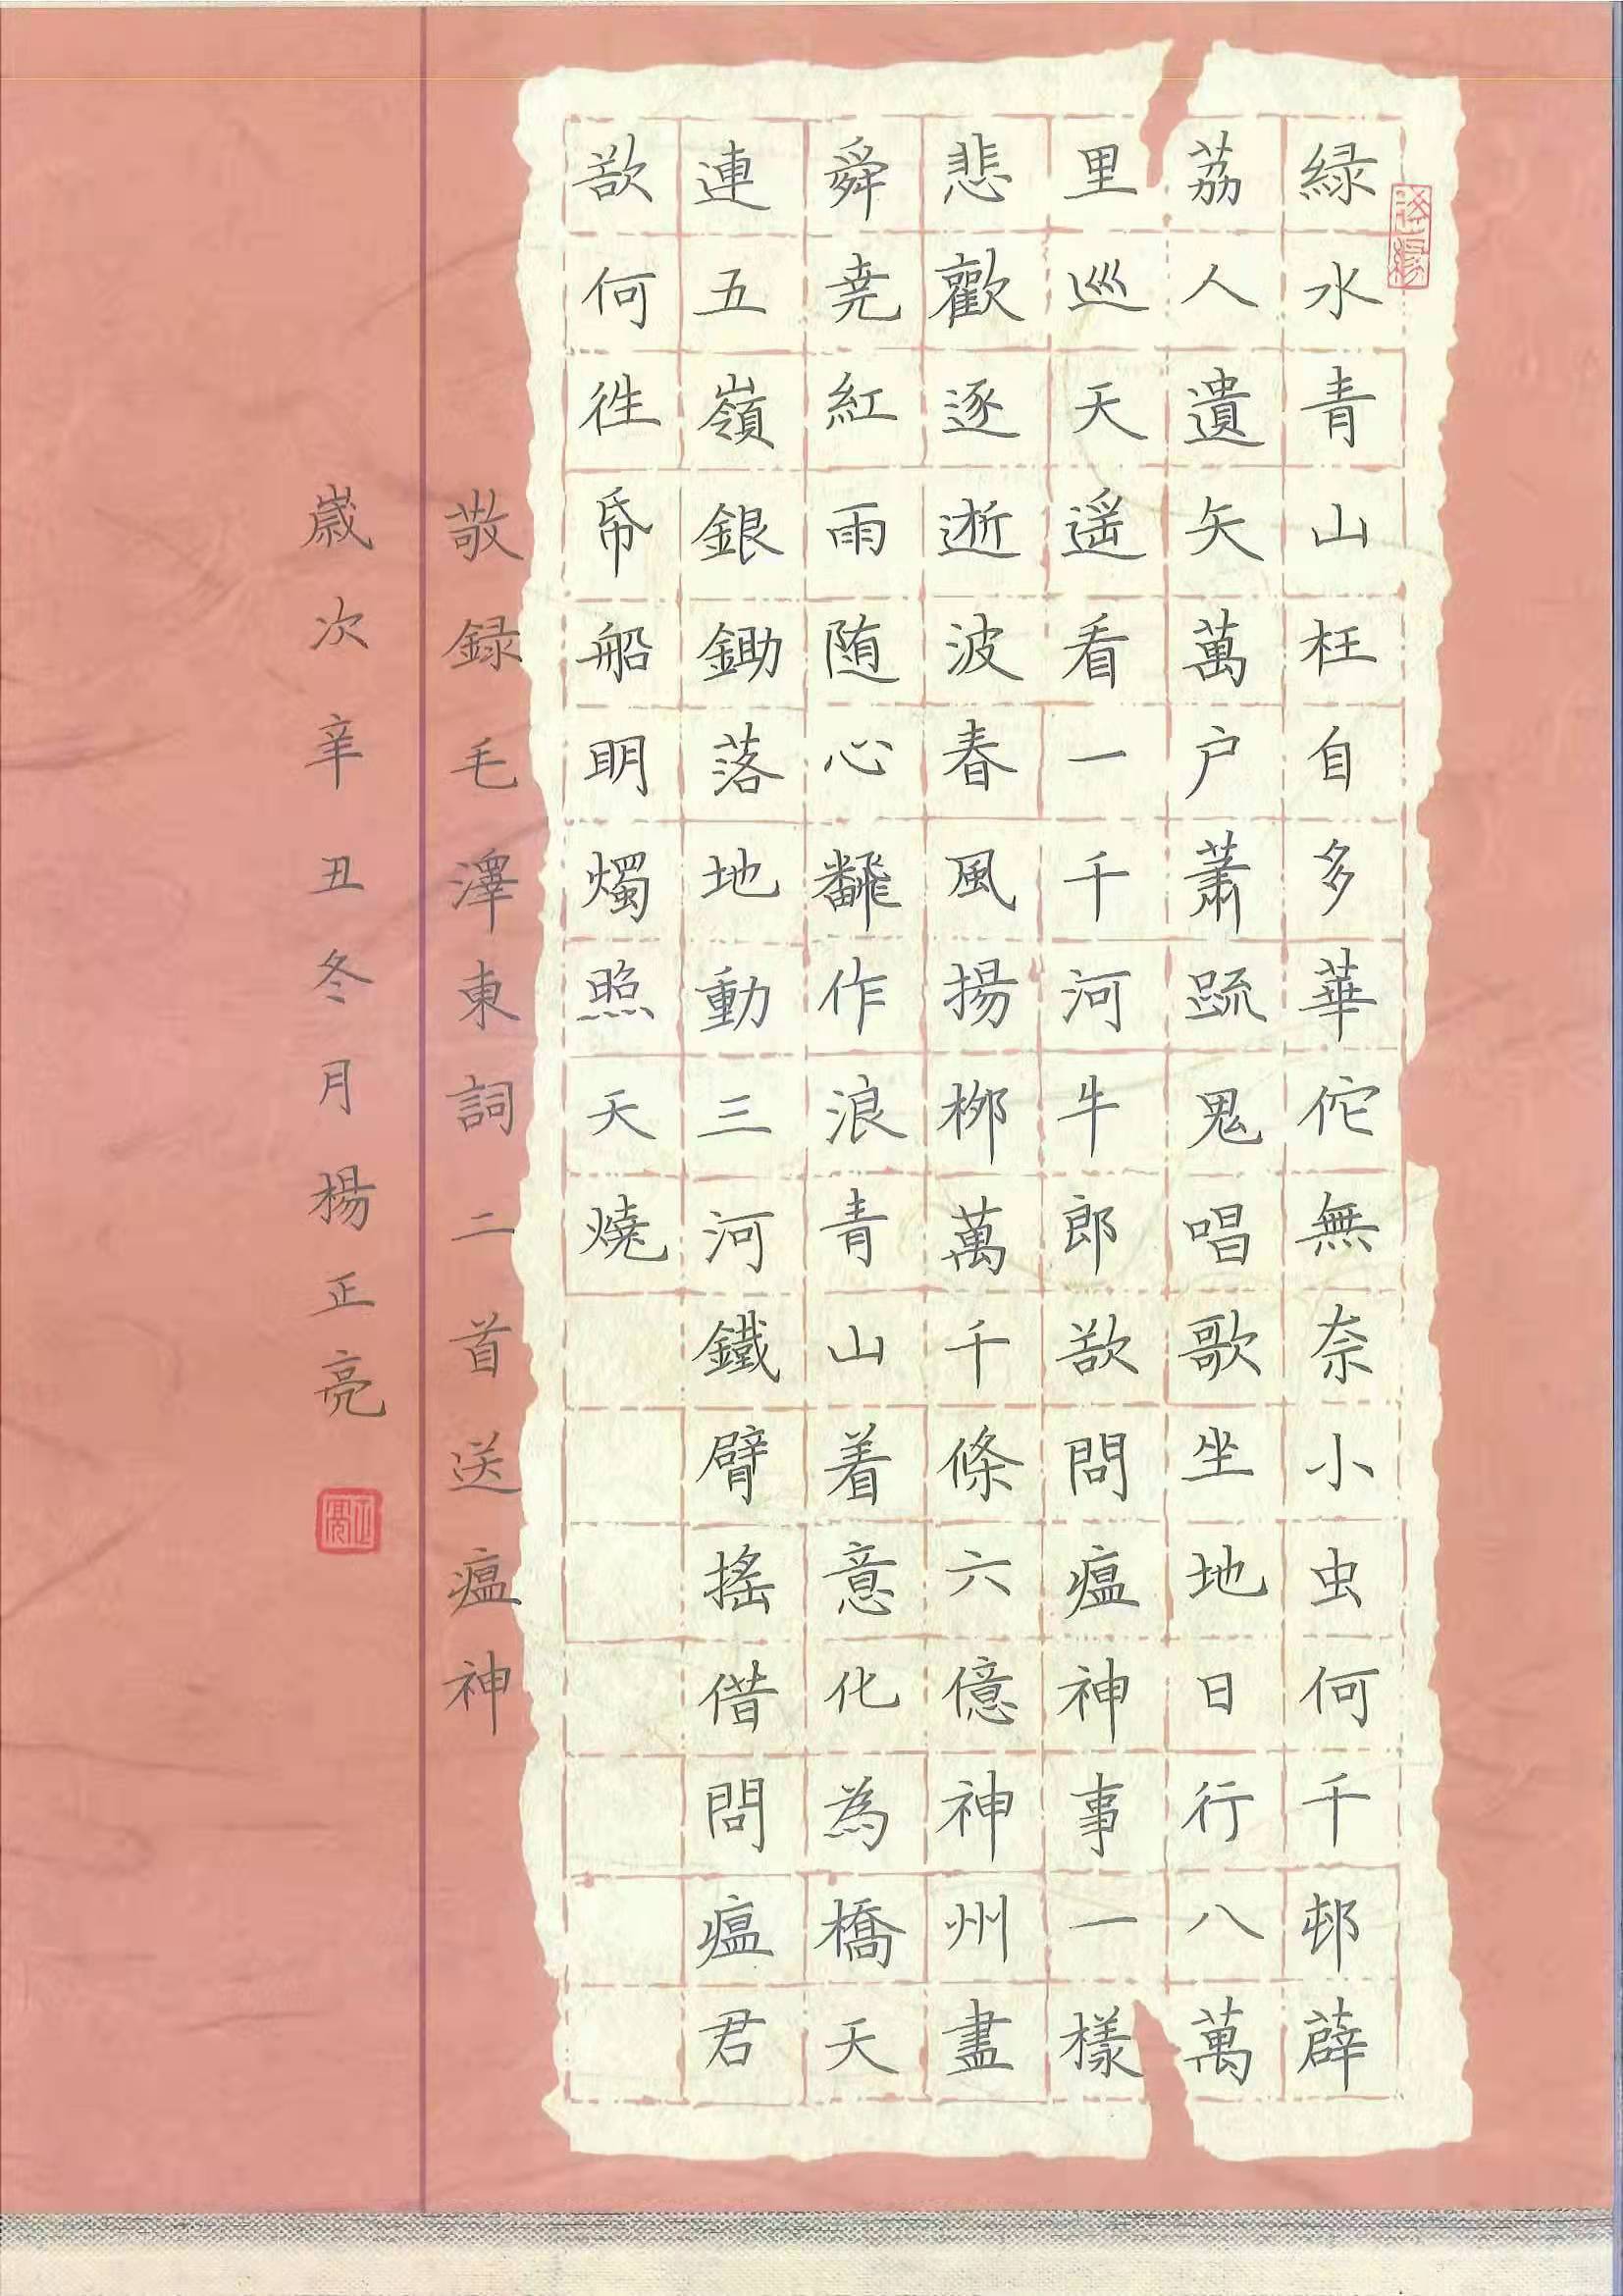 緑水青山枉自多華佗無奈小虫何千邨薜
荔人遺矢萬户蕭疏鬼唱歌坐地日行八萬
里巡天遥看一千河牛郎欲問瘟神事一樣
悲歡逐逝波春風揚桺萬千條六億神州盡
舜尭紅雨随心飜作浪青山着意化為橋天
連五嶺銀鋤落地動三河鐵臂搖偕問瘟君
欲何徃帋船明燭照天燒
敬録毛澤東詞二首送瘟神
歲次辛丑冬月楊正亮
正亮